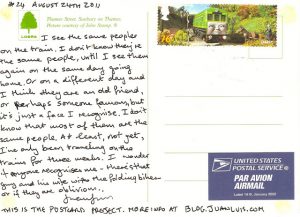 #24 AUGUST 24TH 2011
LOBPA
Thames Street, Sunbury on Thames
Picture courtesy of John Stamp, ©
I see the same peoples
on the train. I don't know they're
the same people, until I see them
again on the same day going
home. Or on a different day and
I think they are an old friend,
or perhaps someone famous, but
it's just a face I recognise. I don't
know that most of them are the
same people. At least, not yet,
I've only been traveling on the
trains for three weeks. I wonder
if anyone recognises me - there's that
guy and his wife with the folding bikes -
or if they are oblivious.
Juanluis
THIS IS THE POSTCARD PROJECT. MORE INFO AT BLOG.JUANLUIS.COM
UNITED STATES
POSTAL SERVICE
PAR AVION
AIRMAIL
Label 19-B, January 2002